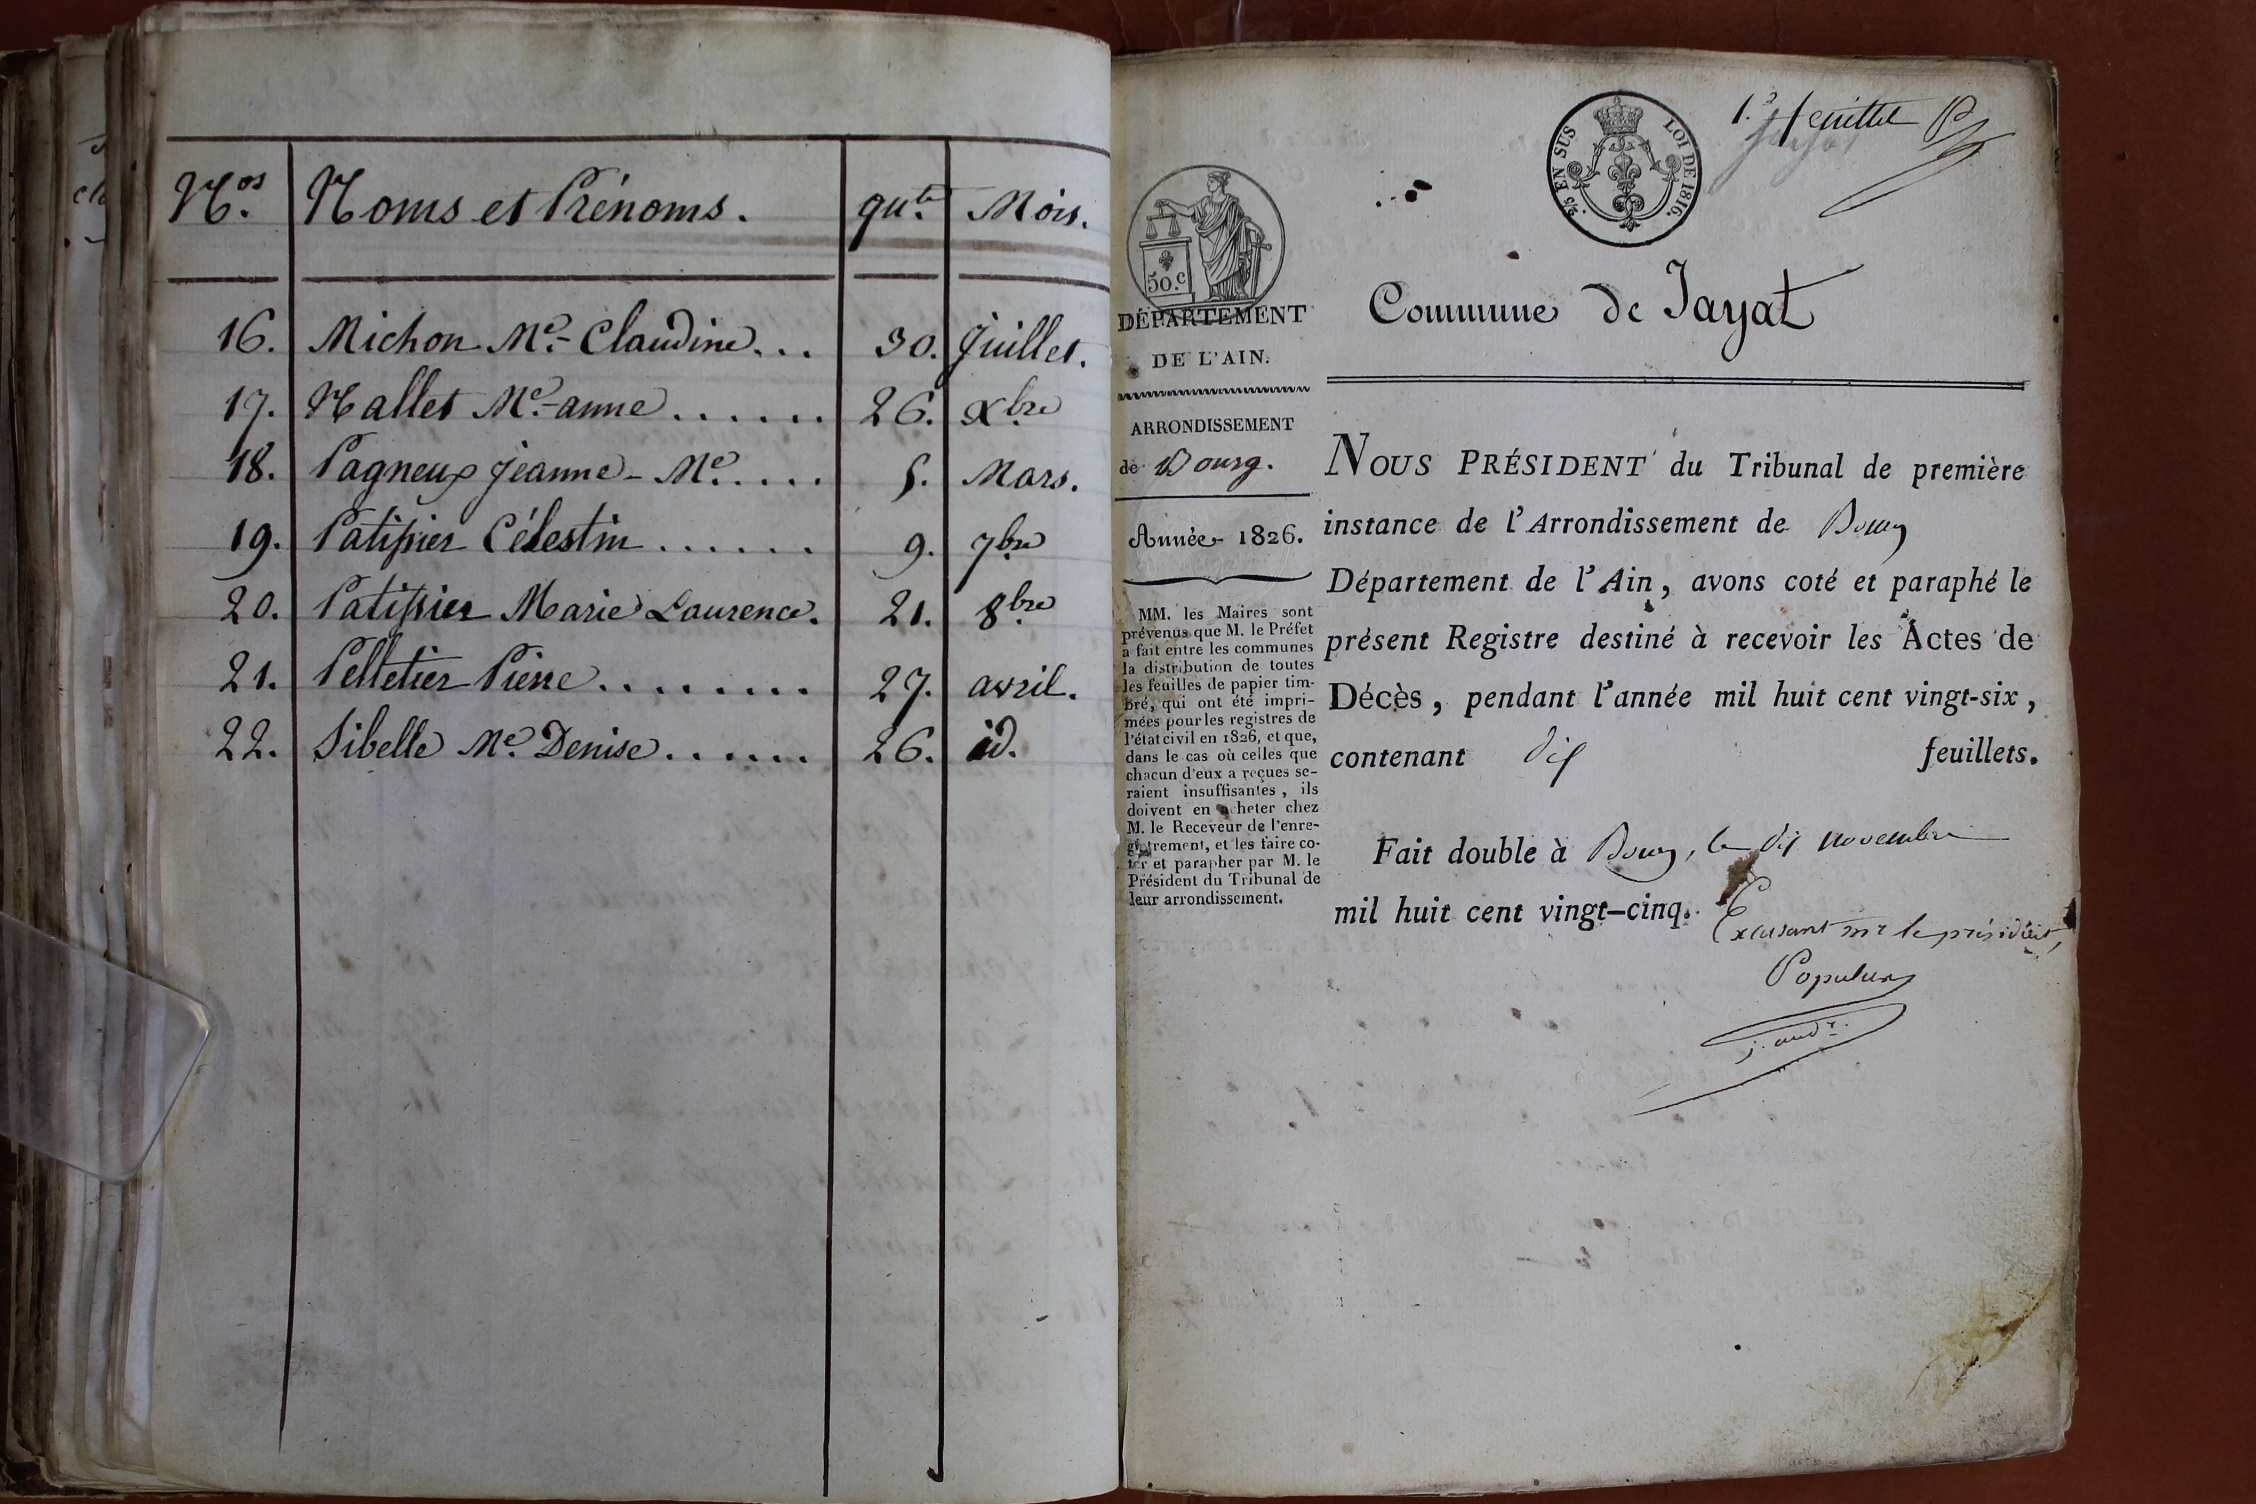 Nos. Noms et Prénoms. qute. Mois.
16. Michon Me.- Claudine... 30. Juillet.
17. Nallet Me.-anne...... 26. Xbre
18. Pagneux Jeanne-Me..... 5. Mars.
19. Patissier Célestin...... 9. 7bre
20. Patissier Marie Laurence. 21. 8bre
21. Pelletier Pierre......... 27. avril.
22. Sibelle Me. Denise...... 26. id.
1er feuillet
5/5 EN SUS LOI DE 1816.
50.c
DÉPARTEMENT
DE L'AIN.
ARRONDISSEMENT
de Bourg.
Année 1826.
MM. les Maires sont
prévenus que M. le Préfet
a fait entre les communes
la distribution de toutes
les feuilles de papier tim-
bré, qui ont été impri-
mées pour les registres de
l'état civil en 1826, et que,
dans le cas où celles que
chacun d'eux a reçues se-
raient insuffisantes, ils
doivent en acheter chez
M. le Receveur de l'enre-
gistrement, et les faire co-
ter et parapher par M. le
Président du Tribunal de
leur arrondissement.
Commune de Jayat
NOUS PRÉSIDENT du Tribunal de première
instance de l'Arrondissement de Bourg
Département de l'Ain, avons coté et paraphé le
présent Registre destiné à recevoir les Actes de
Décès, pendant l'année mil huit cent vingt-six,
contenant dix feuillets.
Fait double à Bourg, le dix novembre
mil huit cent vingt-cinq.
Excusant mr le président,
Populus
j. audr.